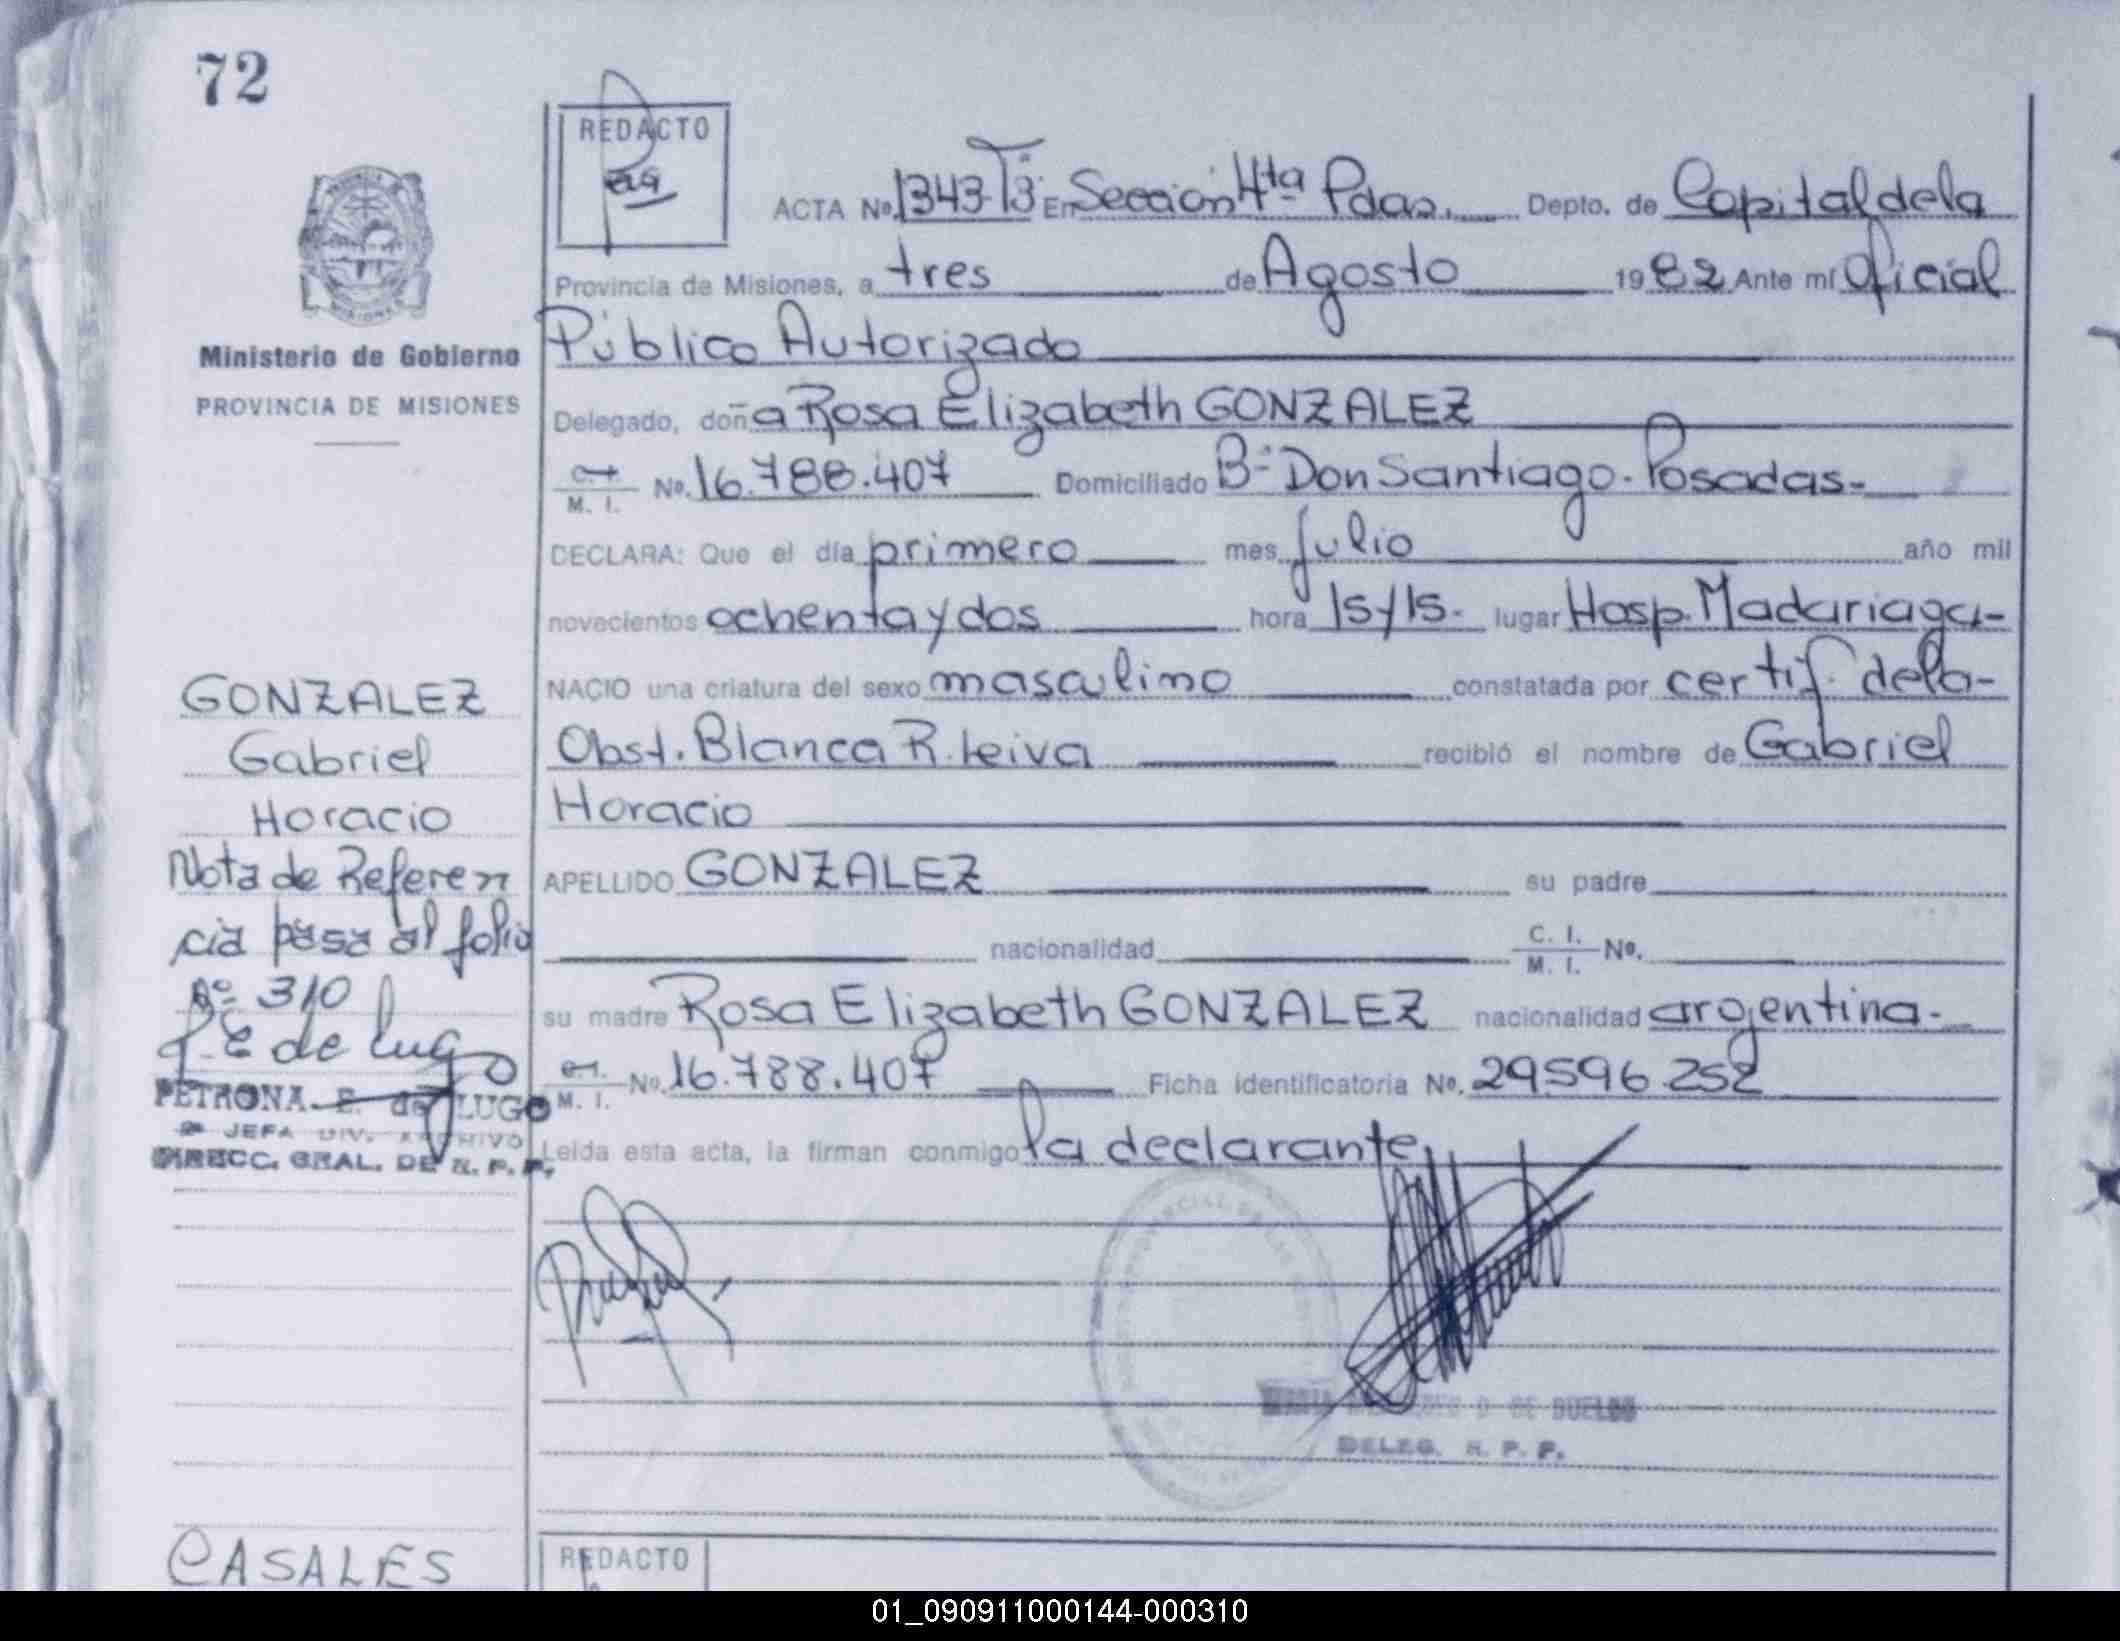 72
REDACTO
ACTA Nº 1343 Tº 3º En Sección 4ta Pdas. Depto. de Capital de la
Provincia de Misiones, a tres de Agosto 1982 Ante mí Oficial
Público Autorizado
Ministerio de Gobierno
PROVINCIA DE MISIONES
Delegado, doña Rosa Elizabeth GONZALEZ
C. I.
M. I. Nº. 16.788.407 Domiciliado Bº Don Santiago. Posadas.-
DECLARA: Que el día primero mes julio año mil
novecientos ochenta y dos hora 15y15.- lugar Hosp. Madariaga-
NACIO una criatura del sexo masculino constatada por certif. de la-
Obst. Blanca R. Leiva recibió el nombre de Gabriel
Horacio
APELLIDO GONZALEZ su padre
nacionalidad C. I.
M. I. Nº.
su madre Rosa Elizabeth GONZALEZ nacionalidad argentina.-
M. I. Nº. 16.788.407 Ficha identificatoria Nº. 29.596.252
Leída esta acta, la firman conmigo la declarante
GONZALEZ
Gabriel
Horacio
Nota de Referen
cia pasa al folio
Nº 310
P. E de Lugo
PETRONA E. de LUGO
JEFA DIV. ARCHIVO
DIRECC. GRAL. DE R. P. P.
DE SUELDO
DELEG. R. P. P.
CASALES
REDACTO
01_090911000144-000310